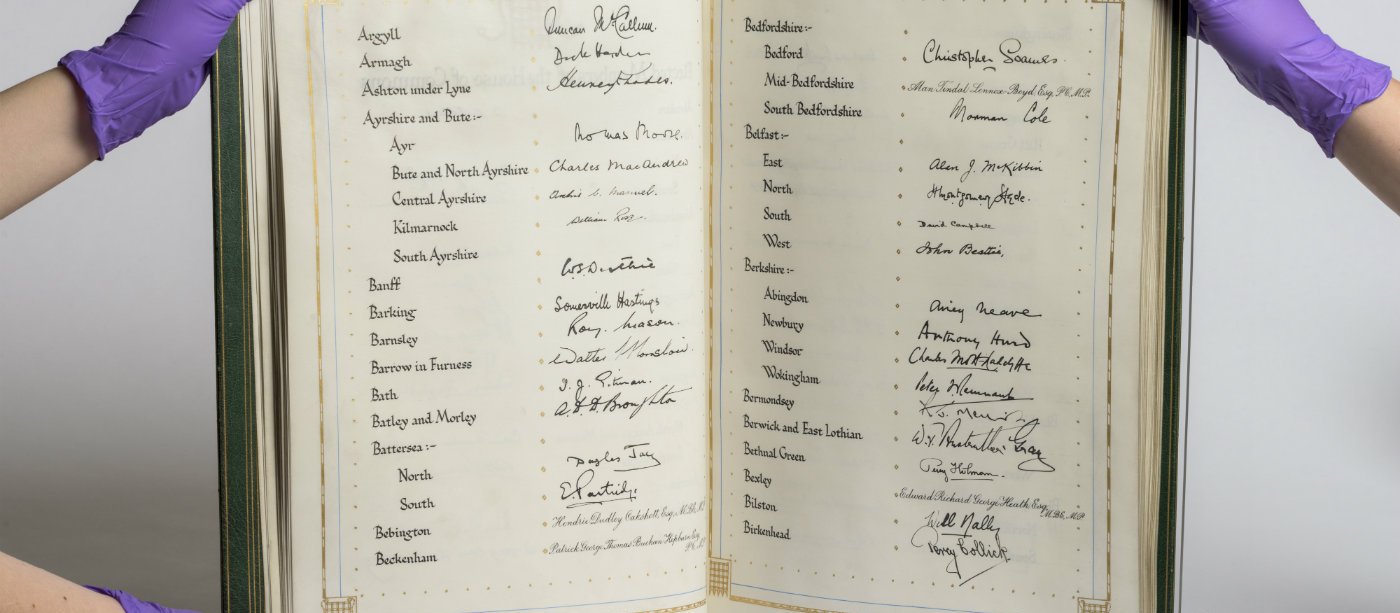 Argyll Duncan McCallum.
Armagh Dick Harden
Ashton under Lyne Hervey Rhodes.
Ayrshire and Bute:-
Ayr Thomas Moore.
Bute and North Ayrshire Charles MacAndrew
Central Ayrshire Archie C. Manuel.
Kilmarnock William Ross.
South Ayrshire
Banff W.S. Duthie
Barking Somerville Hastings
Barnsley Roy. Mason.
Barrow in Furness Walter Monslow.
Bath I. J. Pitman.
Batley and Morley A.D.D. Broughton
Battersea:-
North Douglas Jay
South E. Partridge
Bebington Hendrie Dudley Oakshott, Esq., M.B.E., M.P.
Beckenham Patrick George Thomas Buchan Hepburn Esq. P.C., M.P.
Bedfordshire:-
Bedford Christopher Soames.
Mid-Bedfordshire Alan Tindal Lennox-Boyd Esq., P.C., M.P.
South Bedfordshire Norman Cole
Belfast:-
East Alan J. McKibbin
North H Montgomery Hyde.
South David Campbell
West John Beattie,
Berkshire:-
Abingdon Airey Neave
Newbury Anthony Hurd
Windsor Charles Mott-Radclyffe
Wokingham Peter Remnant
Bermondsey R.J. Mellish
Berwick and East Lothian W.J. Anstruther-Gray
Bethnal Green Percy Holman.
Bexley Edward Richard George Heath, Esq., M.B.E., M.P.
Bilston Will Nally
Birkenhead Percy Collick